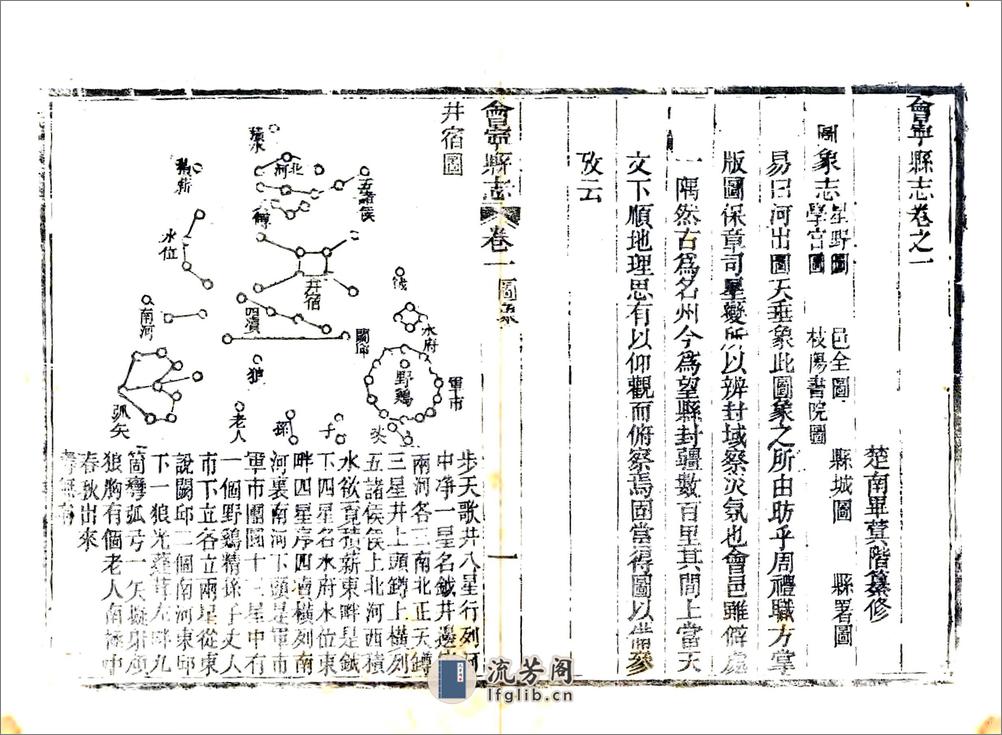 會寧縣志卷之一
楚南畢蓂階纂修
圖象志 星野圖 邑全圖 縣城圖 縣署圖
學宮圖 枝陽書院圖
易曰河出圖天垂象此圖象之所由昉乎周禮職方掌
版圖保章司星變所以辨封域察災氛也會邑雖僻處
一隅然古爲名州今爲望縣封疆數百里其間上當天
文下順地理思有以仰觀而俯察焉固當得圖以備參
攷云
會寧縣志 卷一 圖象 一
井宿圖
積水
北河
五諸侯
積薪
鐏
水位
井宿
鉞
四瀆
南河
闕邱
水府
狼
野鷄
軍市
弧矢
老人
孫
子
丈
步天歌井八星行列河
中凈一星名鉞井邊
南河各三南北正天罇
三星井上頭罇上橫列
五諸侯侯上北河西積
水欲覓積薪東畔是鉞
下四星名水府水位東
畔四星序四瀆橫列南
河裏南河下頭是軍市
軍市團圓十三星中有
一個野鷄精孫子丈人
市下立各立兩星從東
說闕邱二個南河東邱
下一狼光蓬茸左畔九
箇彎弧弓一矢擬射頑
狼胸有個老人南極中
春秋出來
壽無窮
流芳阁
lfglib.cn